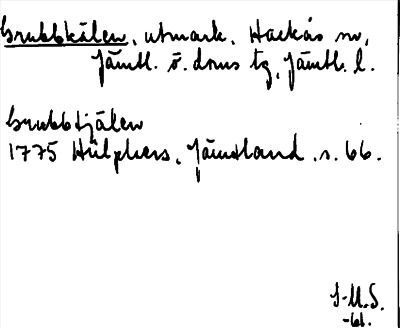 Grubbkälen, utmark, Hackås sn,
Jämtl. ö. doms tg, Jämtl. l.
Grubbtjälen
1775 Hülphers, Jämtland, s. 66.
S-U.S.
-61.